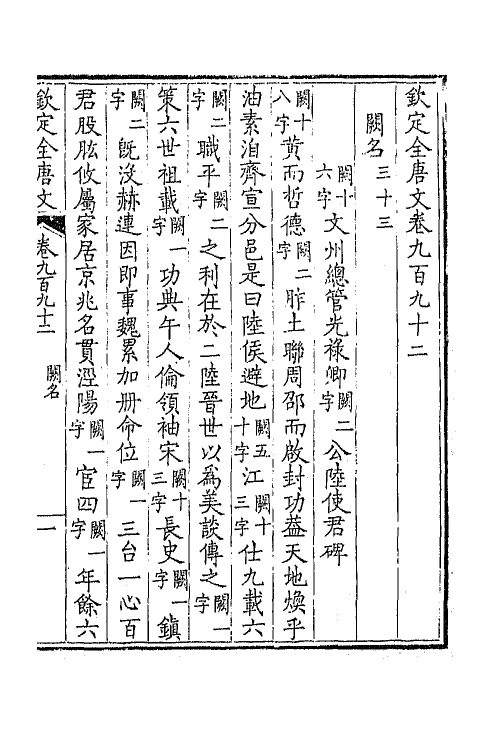 欽定全唐文卷九百九十二
闕名三十三
闕十六字文州總管光祿卿闕二字公陸使君碑
闕十八字黃而哲德闕二字胙土聯周邵而啟封功葢天地煥乎
油素洎齊宣分邑是曰陸侯避地闕五十字江闕十三字仕九載六
闕二字職平闕二字之利在於二陸晉世以爲美談傳之闕一字
策六世祖載闕一字功典午人倫領袖宋闕十三字長史闕一字鎭
闕二字旣沒赫連因即事魏累加冊命位闕一字三台一心百
君股肱攸屬家居京兆名貫涇陽闕一字宦四闕一字年餘六
欽定全唐文 卷九百九十二 闕名 一